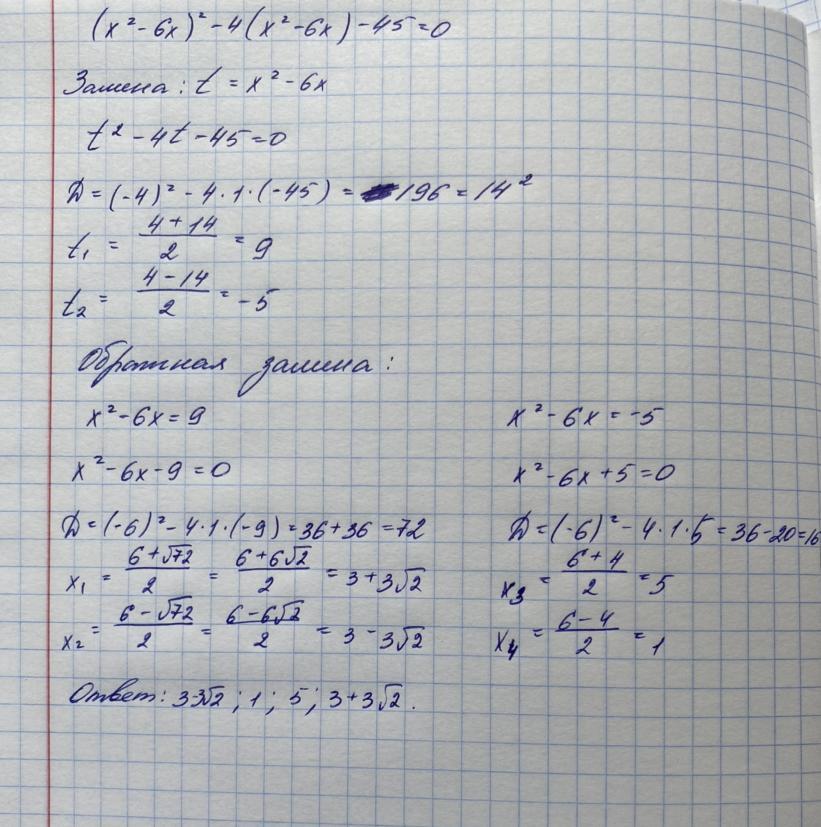 (x² - 6x)² - 4(x² - 6x) - 45 = 0
Замена: t = x² - 6x
t² - 4t - 45 = 0
D = (-4)² - 4·1·(-45) = 196 = 14²
t₁ = (4 + 14)/2 = 9
t₂ = (4 - 14)/2 = -5
Обратная замена:
x² - 6x = 9
x² - 6x - 9 = 0
D = (-6)² - 4·1·(-9) = 36 + 36 = 72
x₁ = (6 + √72)/2 = (6 + 6√2)/2 = 3 + 3√2
x₂ = (6 - √72)/2 = (6 - 6√2)/2 = 3 - 3√2
x² - 6x = -5
x² - 6x + 5 = 0
D = (-6)² - 4·1·5 = 36 - 20 = 16
x₃ = (6 + 4)/2 = 5
x₄ = (6 - 4)/2 = 1
Ответ: 3-3√2; 1; 5; 3+3√2.